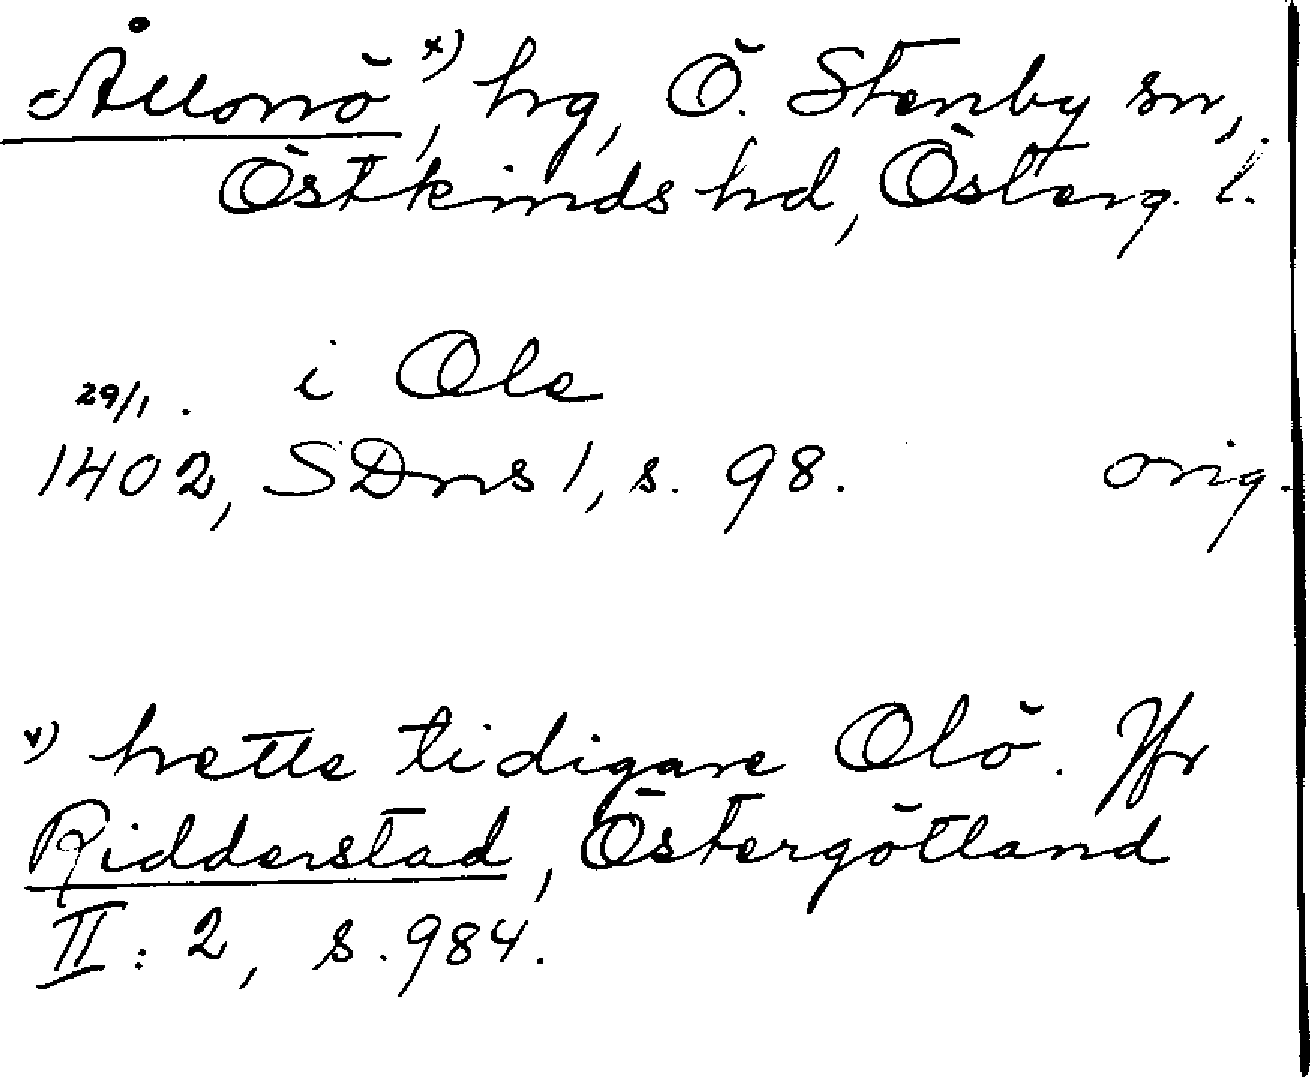 Ållonö x), hg, Ö. Stenby sn,
Östkinds hd, Österg. l.
i Ole
29/1.
1402, SDns 1, s. 98. orig.
x) hette tidigare Olö. Jfr
Ridderstad, Östergötland
II: 2, s. 984.